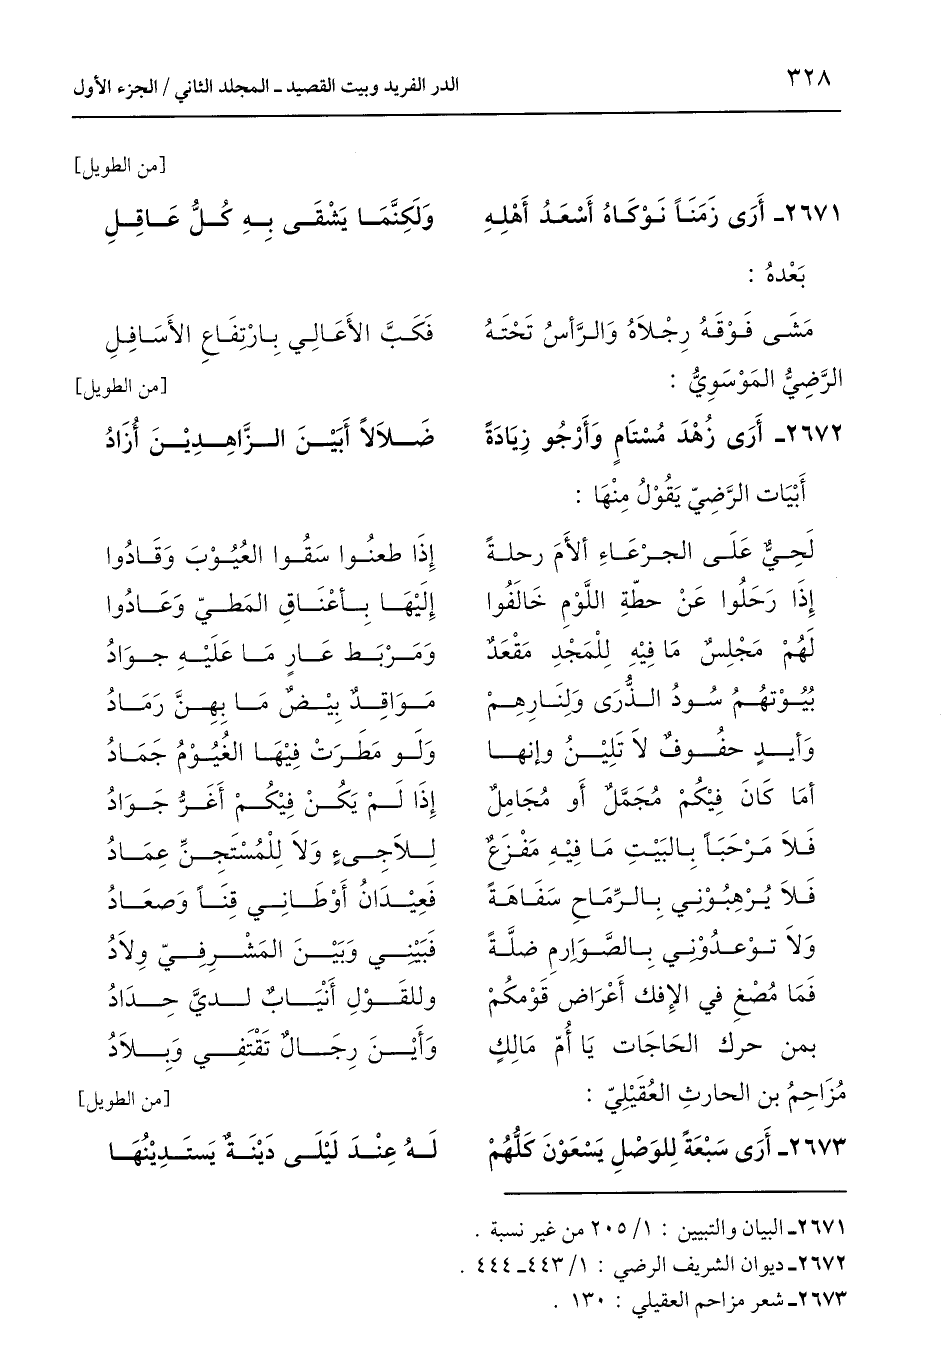 ٣٢٨ الدر الفريد وبيت القصيد ـ المجلد الثاني / الجزء الأول
[من الطويل]
٢٦٧١ـ أَرَى زَمَنَاً نَوْكَاهُ أَسْعَدُ أَهْلِهِ وَلَكِنَّمَا يَشْقَى بِهِ كُلُّ عَاقِلِ
بَعْدهُ :
مَشَى فَوْقَهُ رِجْلاَهُ وَالرَّأسُ تَحْتَهُ فَكَبَّ الأَعَالِي بِارْتِفَاعِ الأَسَافِلِ
الرَّضِيُّ المَوْسَوِيُّ : [من الطويل]
٢٦٧٢ـ أَرَى زُهْدَ مُسْتَامٍ وَأَرْجُو زِيَادَةً ضَلاَلاً أَبَيْنَ الزَّاهِدِيْنَ أُزَادُ
أَبْيَات الرَّضِيّ يَقُوْلُ مِنْهَا :
لَحِيٌّ عَلَى الجرْعَاءِ ألأَمُ رحلةً إِذَا طعنُوا سَقُوا العُيُوْبَ وَقَادُوا
إِذَا رَحَلُوا عَنْ حطّةِ اللَّوْمِ خَالَفُوا إِلَيْهَا بِأَعْنَاقِ المَطِيّ وَعَادُوا
لَهُمْ مَجْلِسٌ مَا فِيْهِ لِلْمَجْدِ مَقْعَدٌ وَمَرْبَط عَارٍ مَا عَلَيْهِ جوَادُ
بُيُوْتُهُمُ سُودُ الذُّرَى وَلِنَارِهِمْ مَوَاقِدٌ بيْضٌ مَا بِهِنَّ رَمَادُ
وَأَيدٍ حفُوفٌ لاَ تَلِيْنُ وإنها وَلَو مَطَرَتْ فِيْهَا الغُيُوْمُ جَمَادُ
أَمَا كَانَ فِيْكُمْ مُجَمَّلٌ أو مُجَامِلٌ إِذَا لَمْ يَكُنْ فِيْكُمْ أَغَرُّ جَوَادُ
فَلاَ مَرْحَبَاً بِالبَيْتِ مَا فِيْهِ مَفْزَعٌ لِلاَجِيءٍ وَلاَ لِلْمُسْتَجِنِّ عِمَادُ
فَلاَ يُرْهِبُوْنِي بِالرِّمَاحِ سَفَاهَةً فَعِيْدَانُ أَوْطَانِي قَنَاً وَصَعَادُ
وَلاَ تَوْعدُوْنِي بِالصَّوَارِمِ ضلَّةً فَبَيْنِي وَبَيْنَ المَشْرِفِيّ وِلاَدُ
فَمَا مُضْغ في الإفكِ أَعْرَاض قَوْمكُمْ وللقَوْلِ أَنْيَابٌ لديَّ حِدَادُ
بمن حرك الحَاجَات يَا أُمّ مَالِكٍ وَأَيْنَ رِجَالٌ تَقْتَفِي وَبِلاَدُ
مُزَاحِمُ بن الحارثِ العُقَيْلِيّ : [من الطويل]
٢٦٧٣ـ أَرَى سَبْعَةً لِلوَصْلِ يَسْعَوْنَ كَلُّهُمْ لَهُ عِنْدَ لَيْلَى دَيْنَةٌ يَستَدِيْنُهَا
٢٦٧١ـ البيان والتبيين : ١/ ٢٠٥ من غير نسبة .
٢٦٧٢ـ ديوان الشريف الرضي : ١/ ٤٤٣ـ ٤٤٤ .
٢٦٧٣ـ شعر مزاحم العقيلي : ١٣٠ .